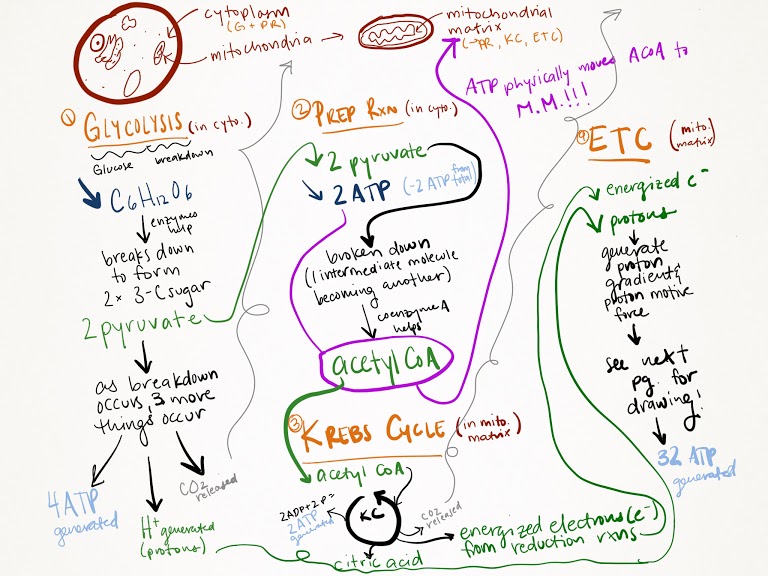 cytoplasm
(G + PR)
mitochondria
mitochondrial
matrix
(→AR, KC, ETC)
ATP physically moves ACoA to
M.M.!!!
① GLYCOLYSIS (in cyto.)
Glucose breakdown
C6H12O6
enzymes
help
breaks down
to form
2x 3-C sugar
2 pyruvate
as breakdown
occurs, 3 more
things occur
4 ATP
generated
H+ generated
(protons)
CO2
released
② PREP RXN (in cyto.)
2 pyruvate
2 ATP (-2 ATP from
total)
broken down
(1 intermediate molecule
becoming another)
coenzyme A
helps
acetyl CoA
③ KREBS CYCLE (in mito.
matrix)
acetyl CoA
KC
2ADP+2P=
2 ATP
generated
CO2
released
citric acid
energized electrons (e-)
from reduction rxns
④ ETC (mito.
matrix)
energized e-
protons
generate
proton
gradient &
proton motive
force
see next
pg. for
drawing!
32 ATP
generated